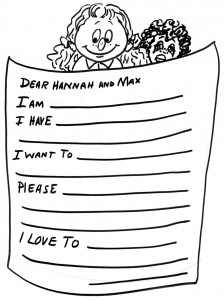 Dear Hannah and Max
I am
I have
I want to
Please
I love to